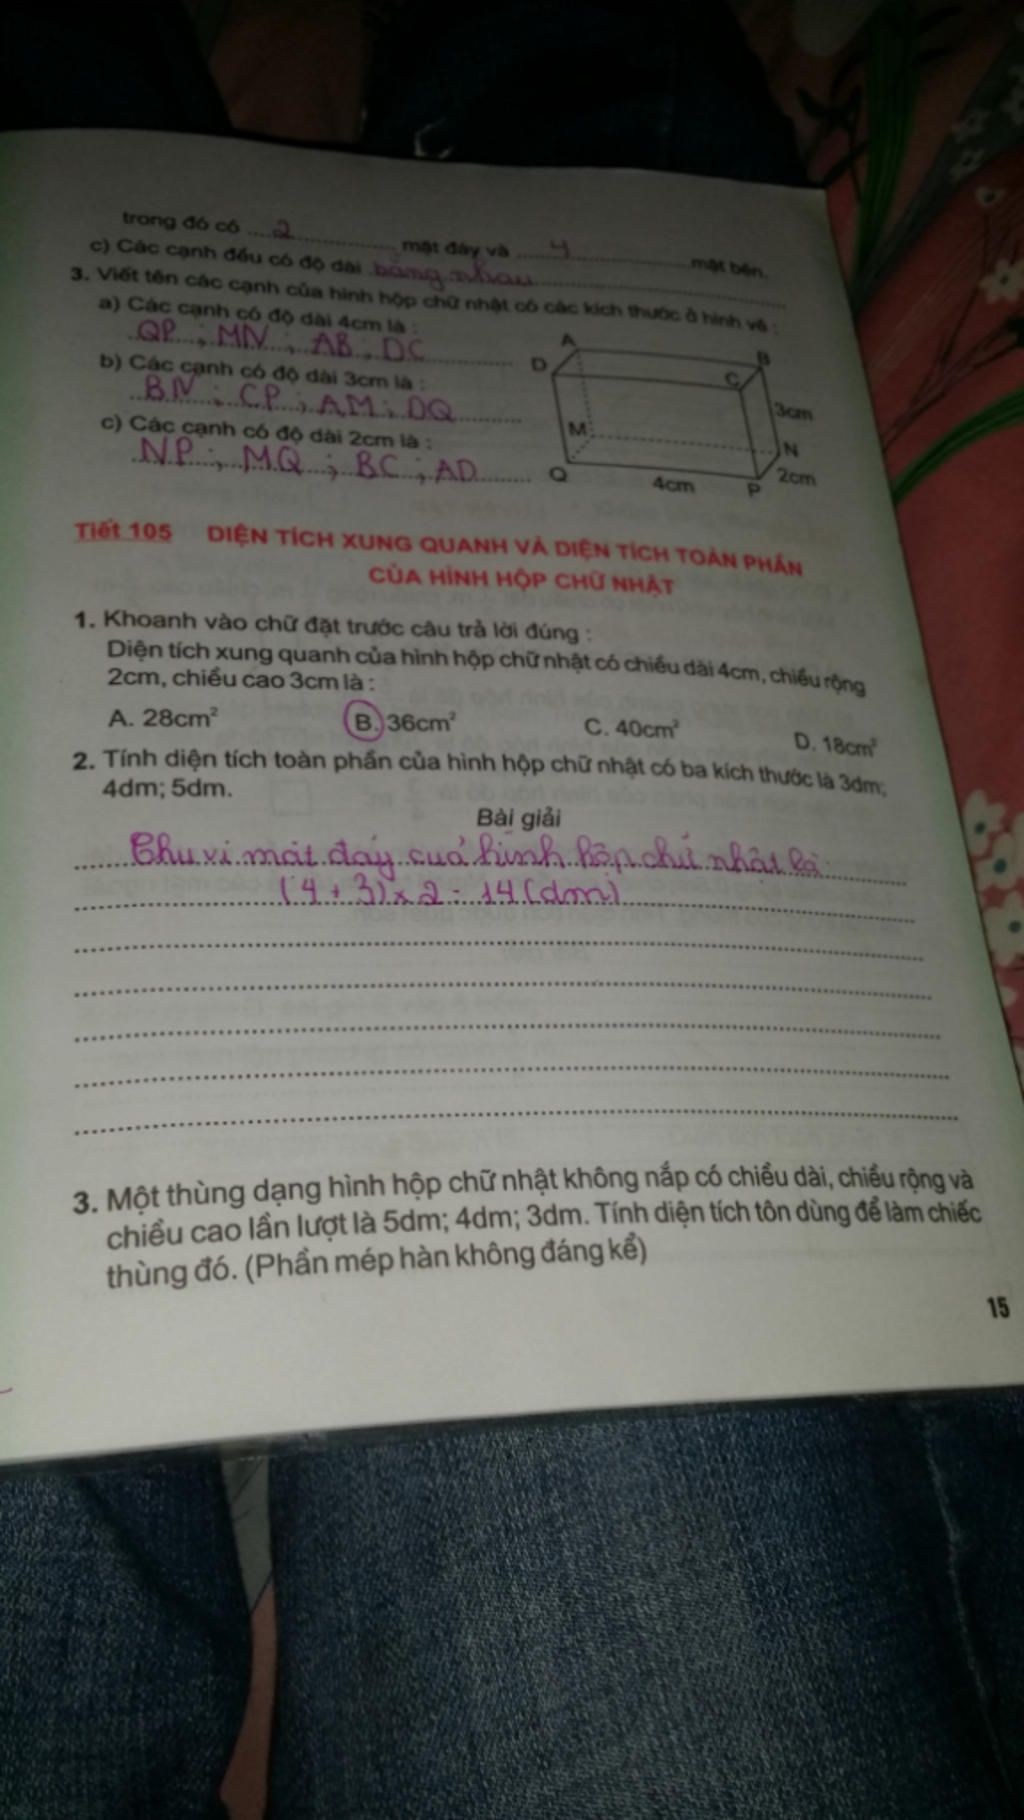 trong đó có ....2.... mặt đáy và ....4.... mặt bên.
c) Các cạnh đều có độ dài bằng nhau
3. Viết tên các cạnh của hình hộp chữ nhật có các kích thước ở hình vẽ :
a) Các cạnh có độ dài 4cm là :
QP ; MN ; AB ; DC
b) Các cạnh có độ dài 3cm là :
BN ; CP ; AM ; DQ
c) Các cạnh có độ dài 2cm là :
NP ; MQ ; BC ; AD
A
B
D
C
3cm
M
N
Q
4cm
P
2cm
Tiết 105 DIỆN TÍCH XUNG QUANH VÀ DIỆN TÍCH TOÀN PHẦN
CỦA HÌNH HỘP CHỮ NHẬT
1. Khoanh vào chữ đặt trước câu trả lời đúng :
Diện tích xung quanh của hình hộp chữ nhật có chiều dài 4cm, chiều rộng
2cm, chiều cao 3cm là :
A. 28cm² B. 36cm² C. 40cm² D. 18cm²
2. Tính diện tích toàn phần của hình hộp chữ nhật có ba kích thước là 3dm;
4dm; 5dm.
Bài giải
Chu vi mặt đáy của hình hộp chữ nhật là
(4 + 3) x 2 = 14 (dm)
3. Một thùng dạng hình hộp chữ nhật không nắp có chiều dài, chiều rộng và
chiều cao lần lượt là 5dm; 4dm; 3dm. Tính diện tích tôn dùng để làm chiếc
thùng đó. (Phần mép hàn không đáng kể)
15